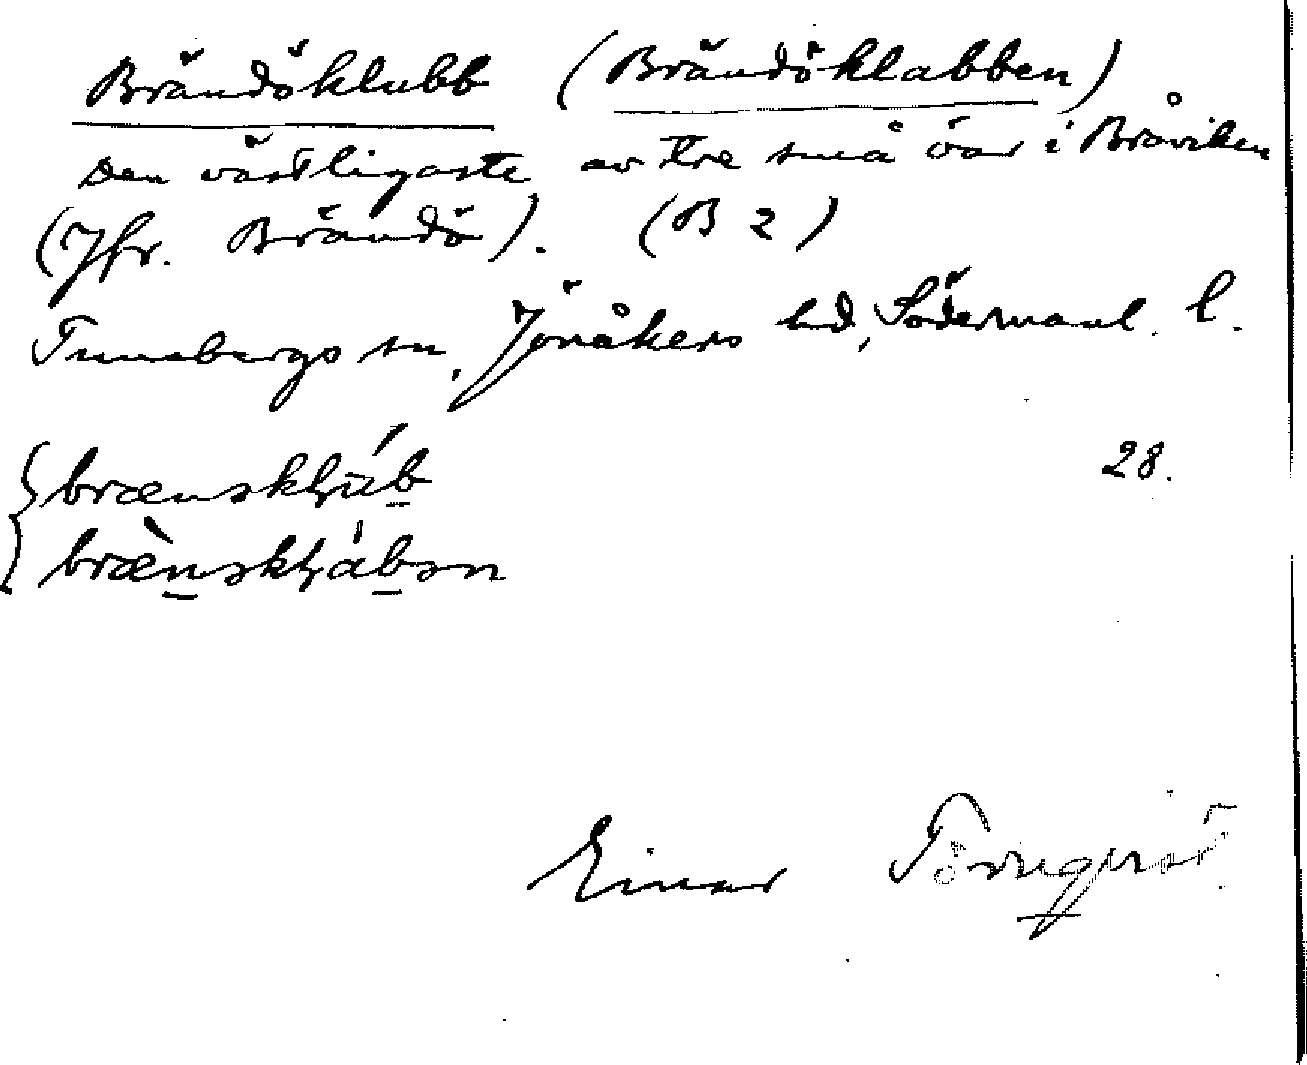 Brändöklubb (Brändöklabben)
Den västligaste av tre små öar i Bråviken
(Jfr. Brändö). (B 2)
Tunabergs sn, Jönåkers hd, Södermanl. l.
brænskl̥úb 28.
brænskl̥ábən
Einar Törnqvist